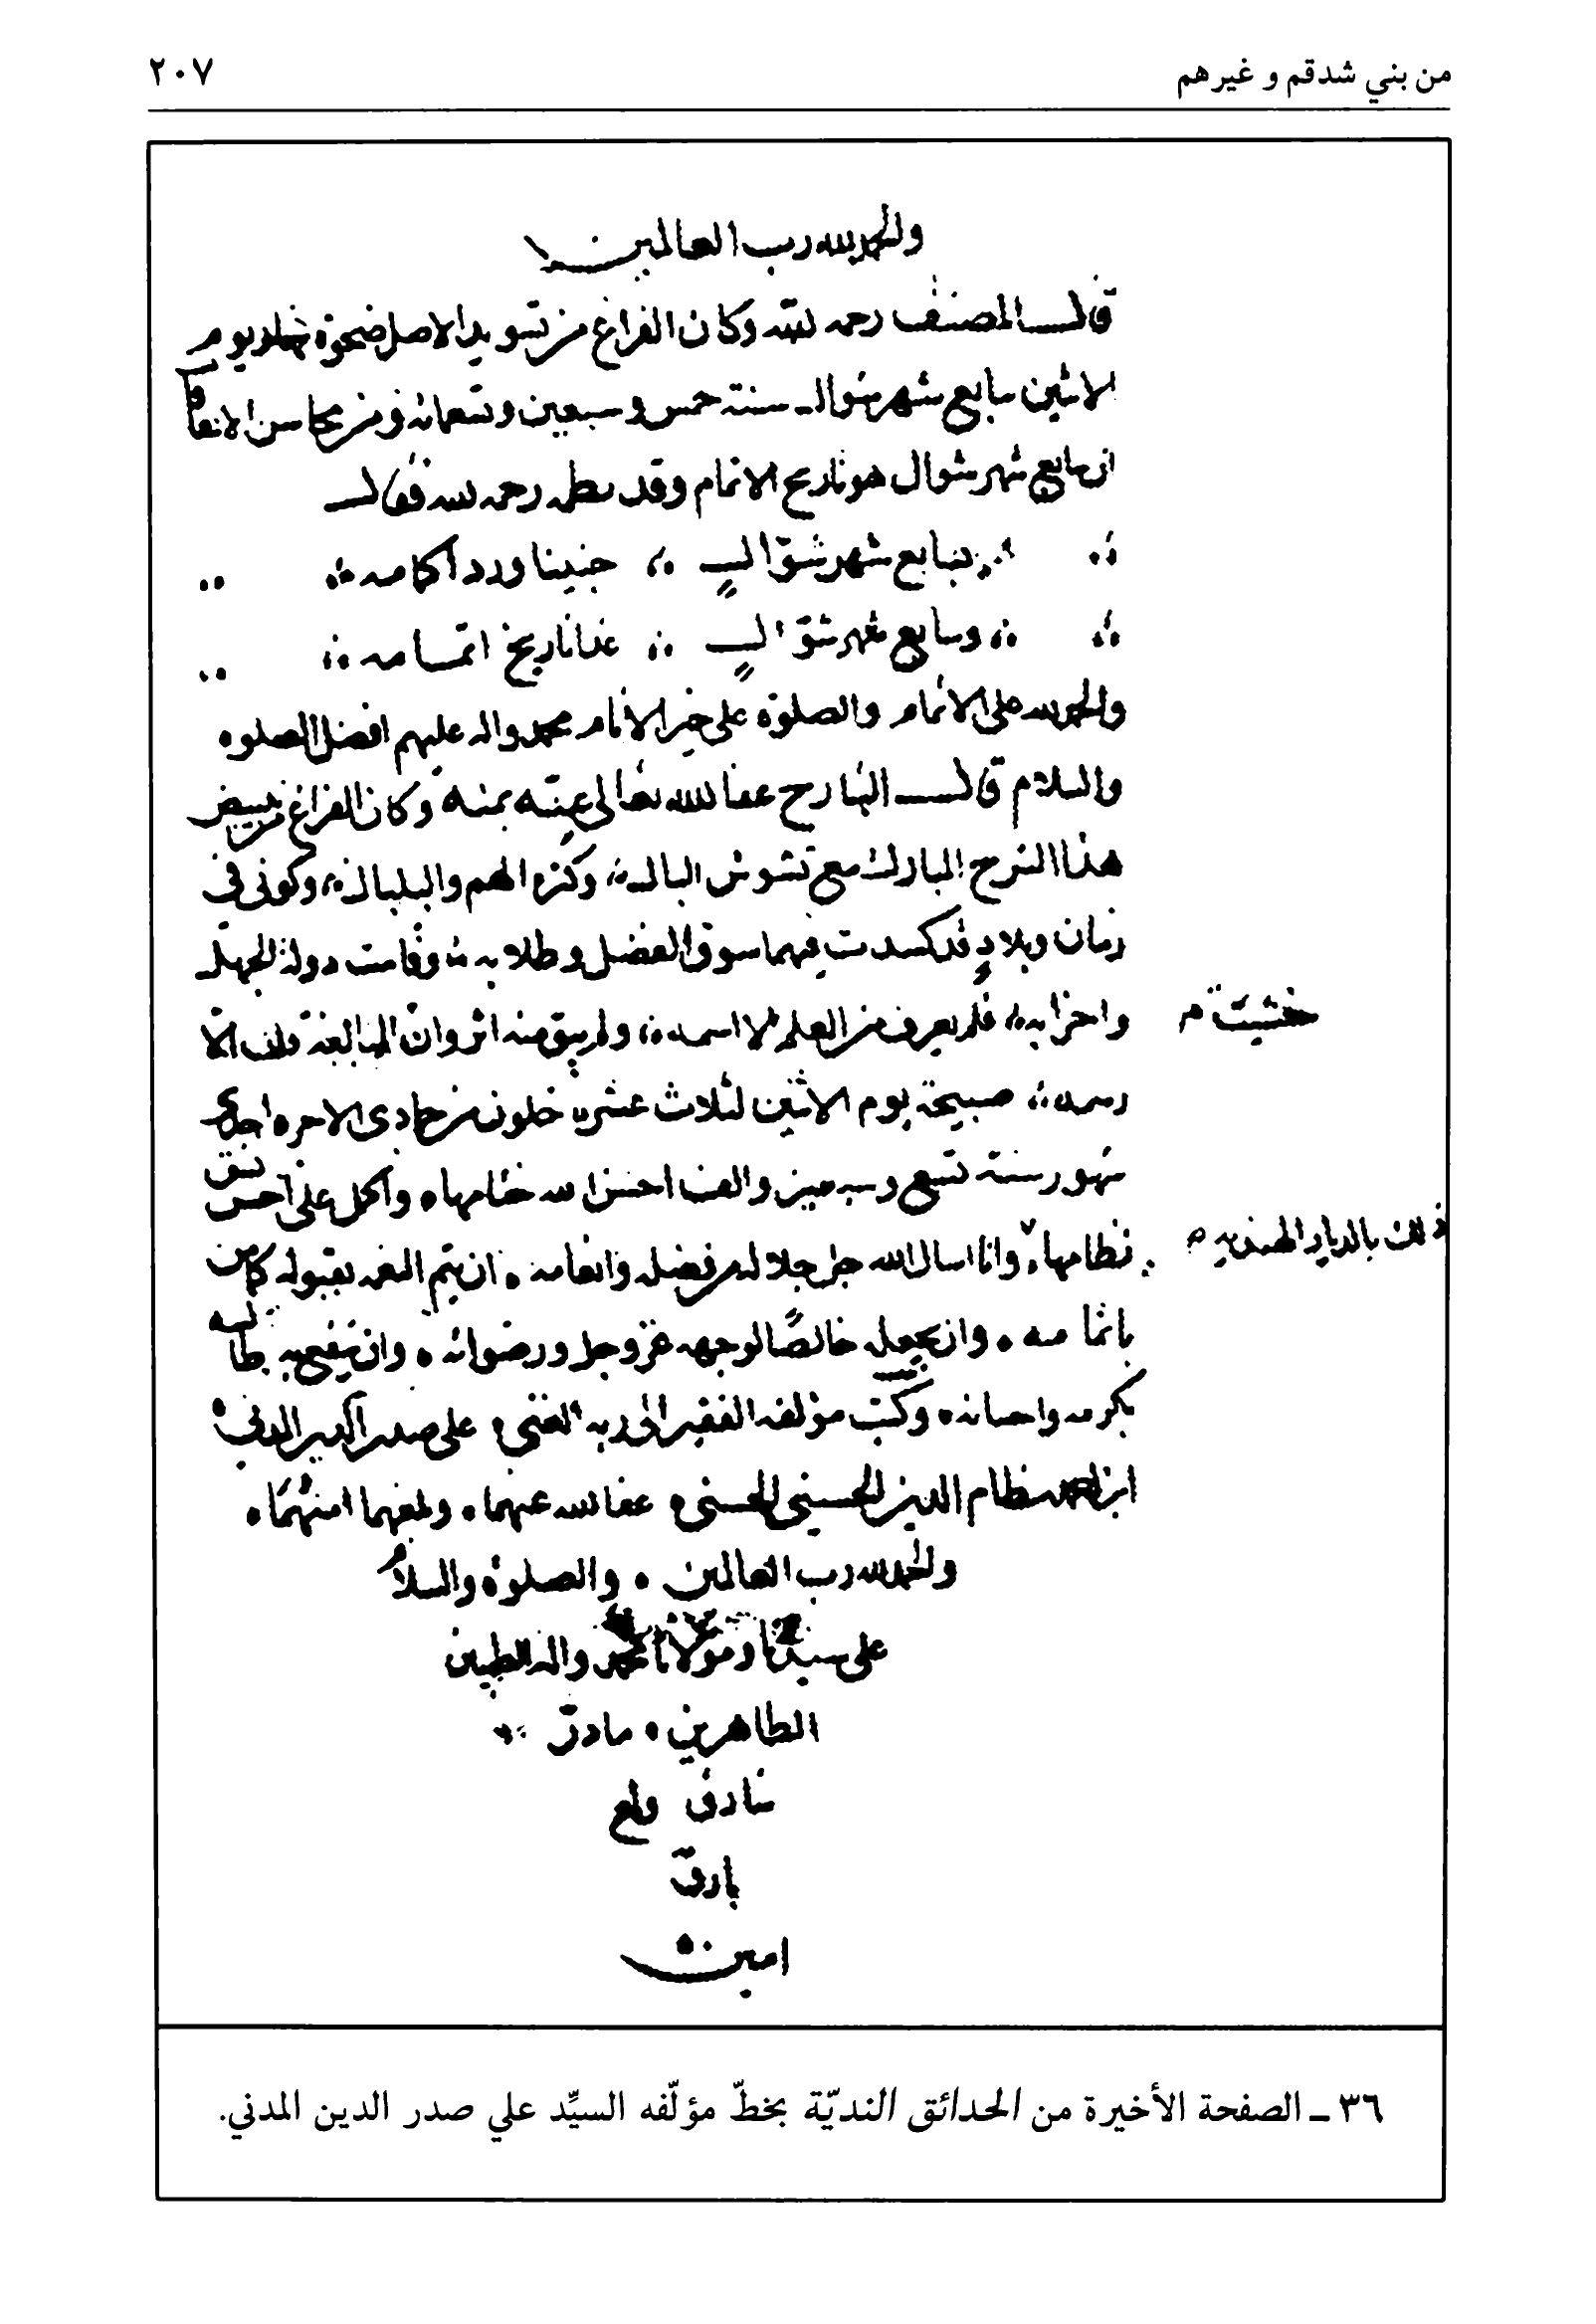 من بني شدقم و غيرهم ٢٠٧
والحمد لله رب العالمين
قال المصنف رحمه الله وكان الفراغ من تسويد الاصل ضحوة نهار يوم
الاثنين سابع شهر شوال سنة خمس وسبعين وتسعمائة ومن محاسن الاتفاق
ان سابع شهر شوال هو تاريخ الاتمام وقد نظمه رحمه الله فقال
بسابع شهر شوّال جنينا ورد اكامه
وسابع شهر شوّال غدا تاريخ اتمامه
والحمد لله على الاتمام والصلوة على خير الانام محمد واله عليهم افضل الصلوه
والسلام قال الشارح عفا الله تعالى عنه بمنه وكان الفراغ من تبييض
هذا الشرح المبارك مع تشوش البال وكثرة الهم والبلبال وكوني في
زمان وبلاد قد كسدت فيهما سوق الفضل وطلابه وقامت دولة الجهل
واحزابه فلم يعرف من العلم الا اسمه ولم يبق منه اثر وان المبالغة قلت الّا
خشيت م
رسمه صبيحة يوم الاثنين لثلاث عشرة خلون من جمادى الاخره احدى
شهور سنة تسع وسبعين والف احسن الله ختامها واكمل على احسن نسق
نظامها وانا اسال الله جل جلاله من فضله وانعامه ان يتم النعمه بقبوله كما من
ذلك بالديار الهنديه م
باتمامه وان يجعله خالصًا لوجهه عز وجل ورضوانه وان ينفع به طالبه
بكرمه واحسانه وكتب مؤلفه الفقير الى ربه الغني على صدر الدين المدني
ابن احمد نظام الدين الحسيني الحسني عفا الله عنهما ولمغهما امنيتهما
والحمد لله رب العالمين والصلوة والسلام
على سيدنا ومولانا محمد واله الطيبين
الطاهرين ما ذرّ
شارق ولمع
بارق
امين
٣٦ ـ الصفحة الأخيرة من الحدائق النديّة بخطّ مؤلّفه السيِّد علي صدر الدين المدني.